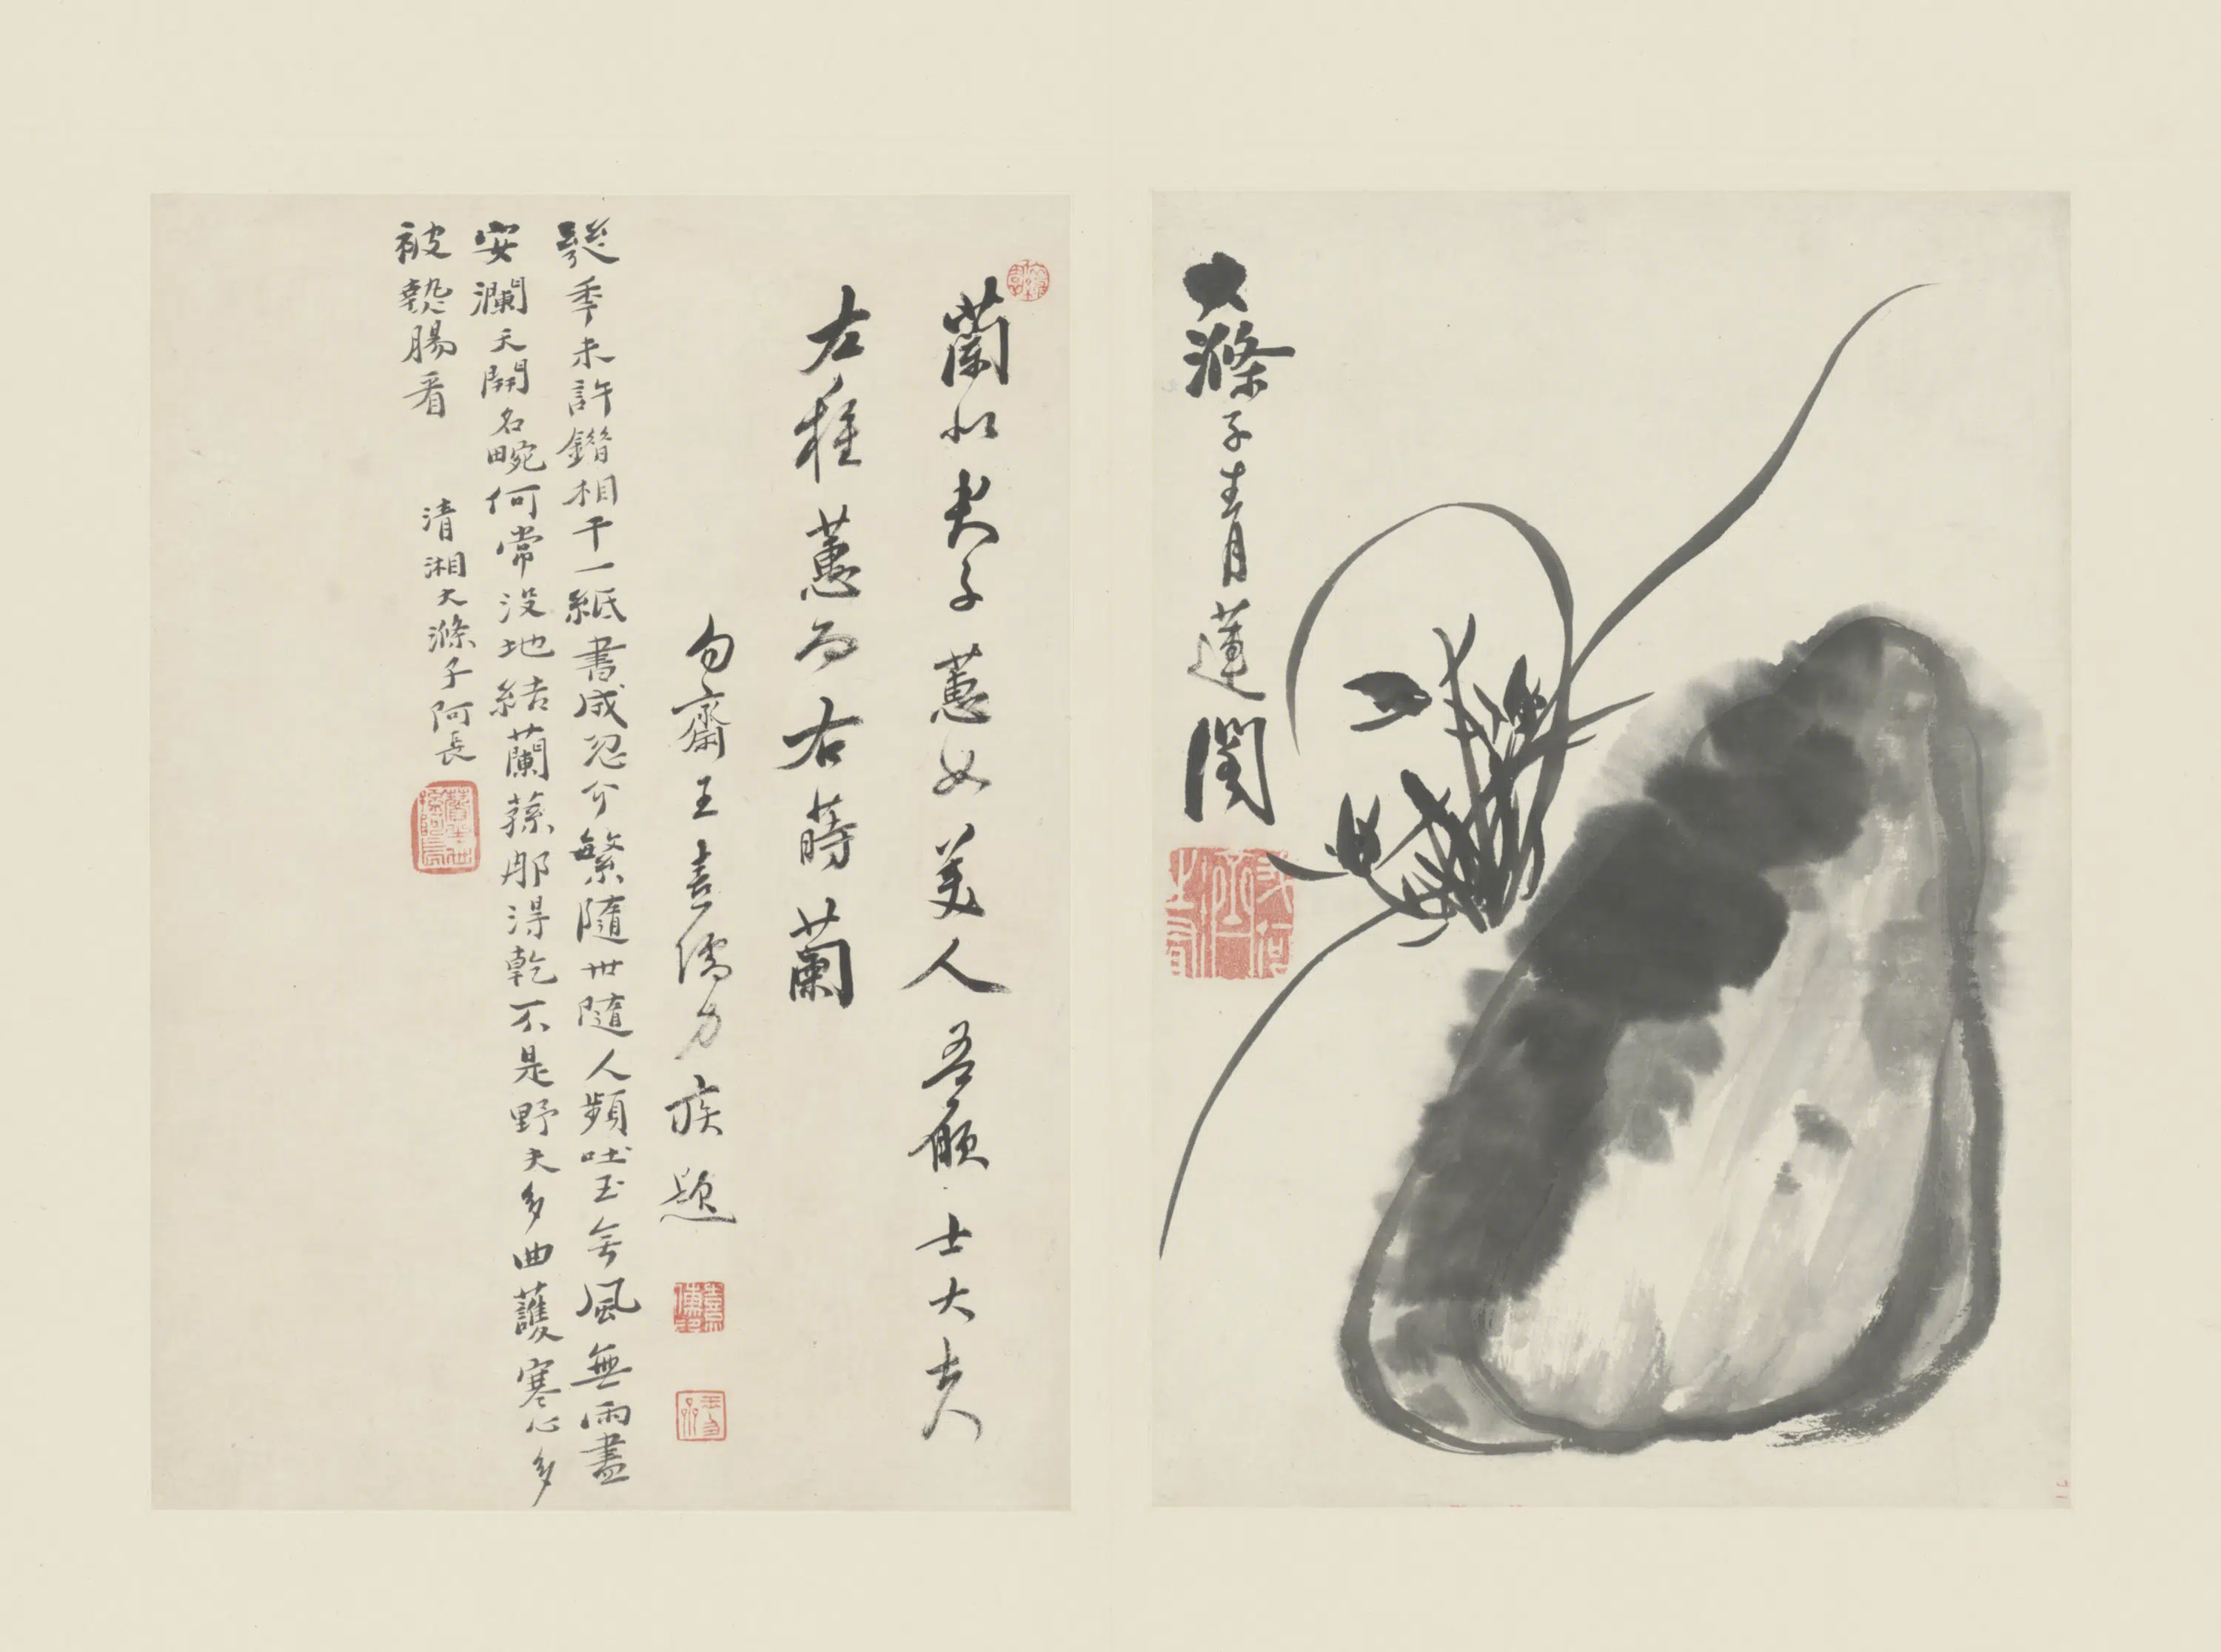 大滌子青蓮閣
蘭似夫子蕙如美人吾願士大夫
左種蕙而右蒔蘭
勿齋王喜儒力疾題
季未許鐕相干一紙書成忍介繁隨世隨人頻吐玉無風無雨盡
安瀾天開名畹何常沒地結蘭蓀那得乾不是野夫多曲護寒心多
被熱腸看
清湘大滌子阿長